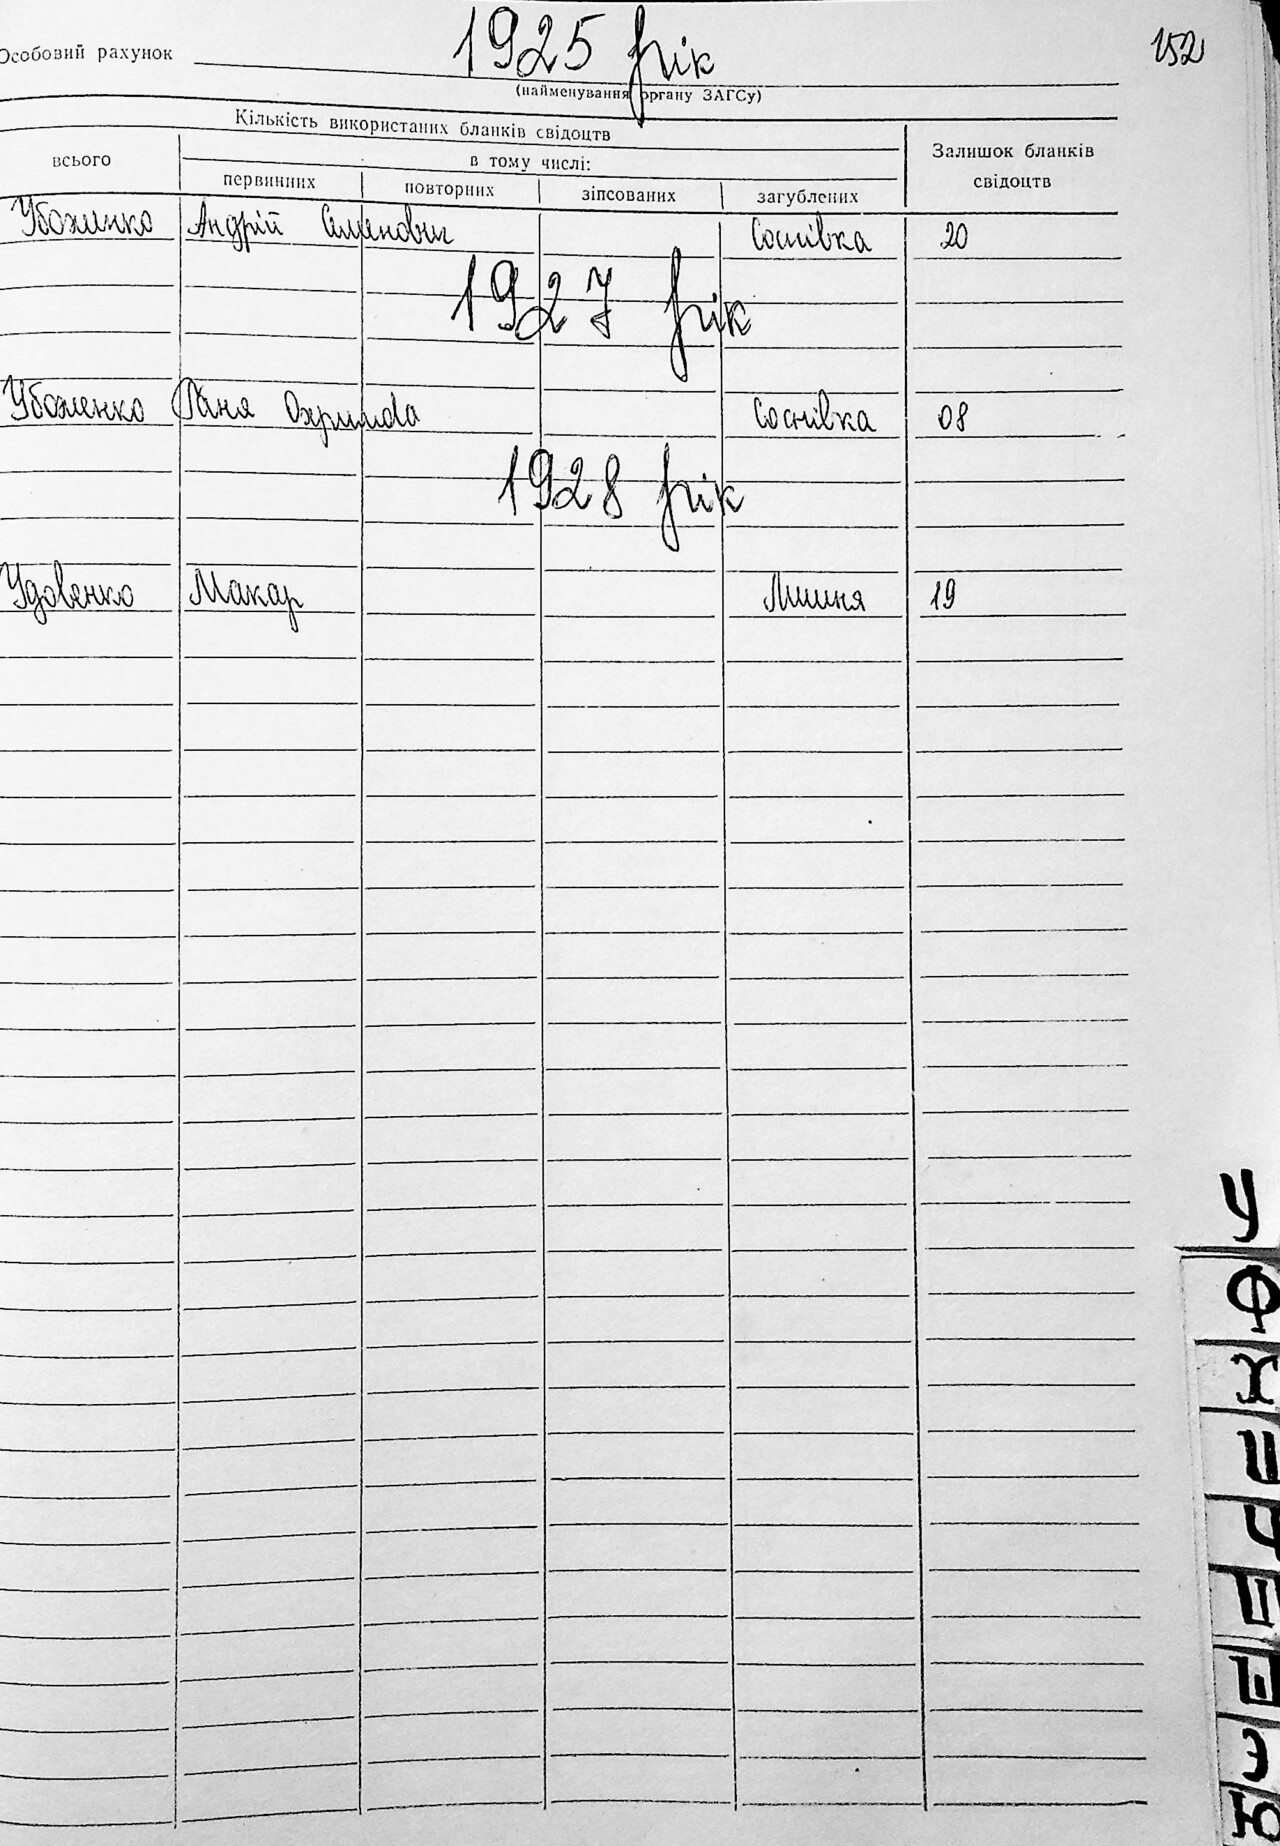 152
Особовий рахунок 1925 рік
(найменування органу ЗАГСу)
Кількість використаних бланків свідоцтв
всього
в тому числі:
Залишок бланків свідоцтв
первинних повторних зіпсованих загублених
Убоженко Андрій Семенович Соснівка 20
1927 рік
Убоженко Ганя Соснівка 08
1928 рік
Удовенко Макар 19
У
Ф
Х
Ц
Ч
Ш
Щ
Э
Ю